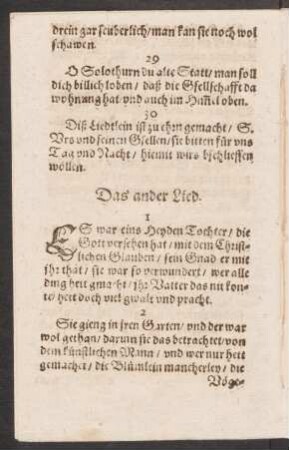 drein gar seuberlich/man kan sie noch wol
schawen.
29
O Solothurn du alte Statt/man soll
dich billich loben/ daß die Gsellschafft da
wohnung hat vnd auch im Him̃el oben.
30
Diß Liedtlein ist zu ehrn gemacht/ S.
Vrs vnd seinen Gsellen/sie bitten für vns
Tag vnd Nacht/ hiemit wirs bschliessen
wöllen.
Das ander Lied.
1
ES war eins Heyden Tochter/ die
Gott versehen hat/ mit dem Christ-
lichen Glauben/ sein Gnad er mit
jhr that/ sie war so verwundert/ wer alle
ding hett gmacht/ jhr Vatter das nu kon-
te/ hett doch viel gwalt vnd pracht.
2
Sie gieng in jren Garten/ vnd der war
wol gethan/ darinn sie das betrachtet/von
dem künstlichen Mann/ vnd wer nur hett
gemachet/ die Blümlein mancherley/ die
Vöge-